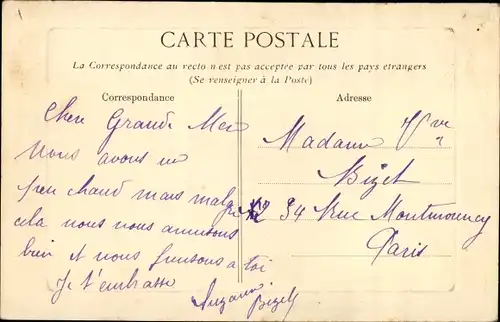 CARTE POSTALE
La Correspondance au recto n'est pas acceptée par tous les pays étrangers
(Se renseigner à la Poste)
Correspondance
Adresse
Chere Grande Mere
Nous avons un
peu chaud mais malgre
cela nous nous amusons
bien et nous pensons a toi
Je t'embrasse
Suzanne
Bizet
Madame Vve
Bizet
34 Rue Montmorency
Paris